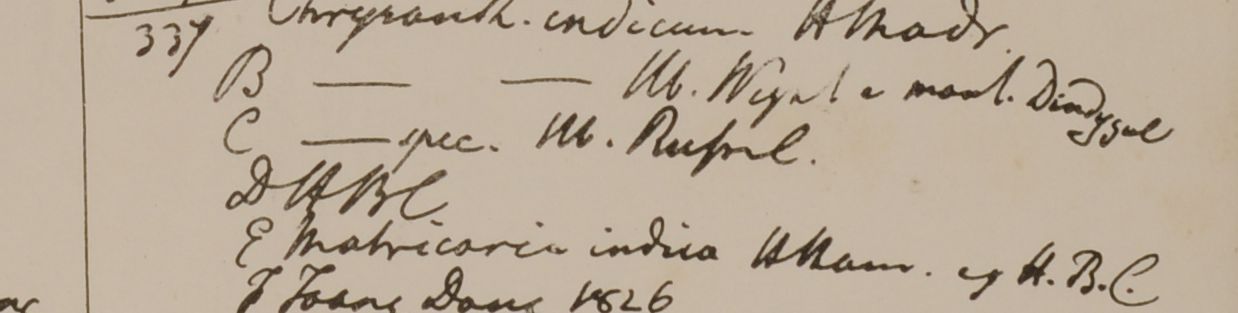 337 Chrysanth. indicum H Madr.
B — — Hb. Wight e mont. Dindygul
C — spec. Hb. Russel.
D H B C
E Matricaria indica H Ham. ex H. B. C.
F Toong Dong 1826